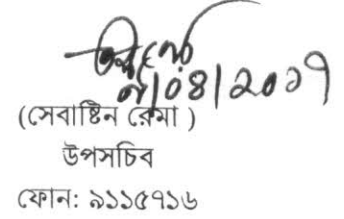 ০৪|২০১৭
(সেবাষ্টিন রেমা )
উপসচিব
ফোন: ৯১১৫৭১৬